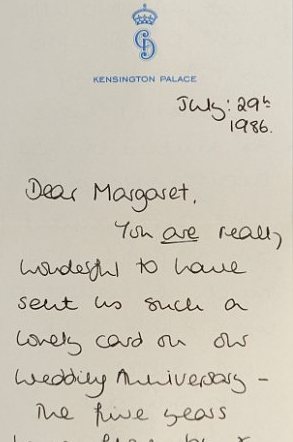 KENSINGTON PALACE
July: 29th
1986.
Dear Margaret,
You are really
wonderful to have
sent us such a
lovely card on our
Wedding Anniversary –
The five years